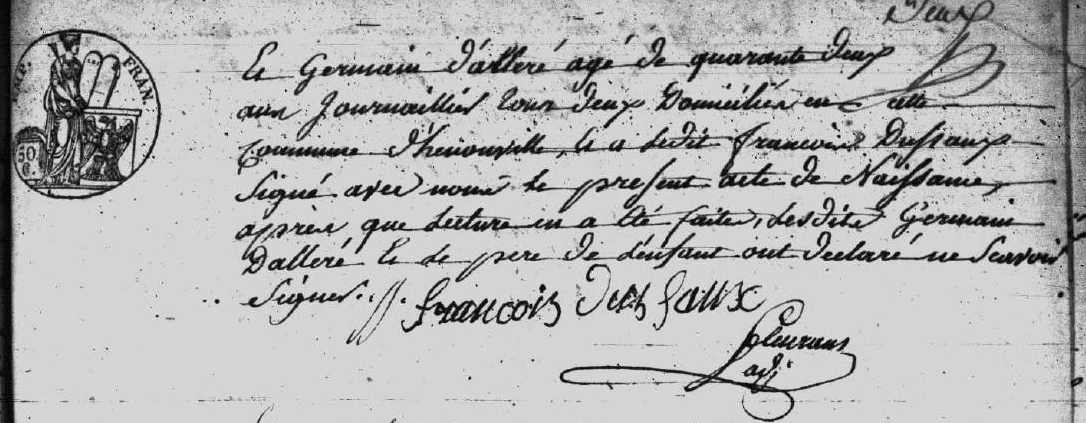 Deux
RÉP. FRAN.
50
C.
Et Germain d'alleré agé de quarante deux
ans Journaillier tous deux Domicilies en cette
Commune d'henouville, et a ledit françois Dussaux
Signé avec nous le present acte de Naissance,
après que Lecture en a été faite, Lesdits Germain
Dalleré Et Le pere de L'enfant ont declaré ne Scavoir
Signer.
françois dussaux
adj